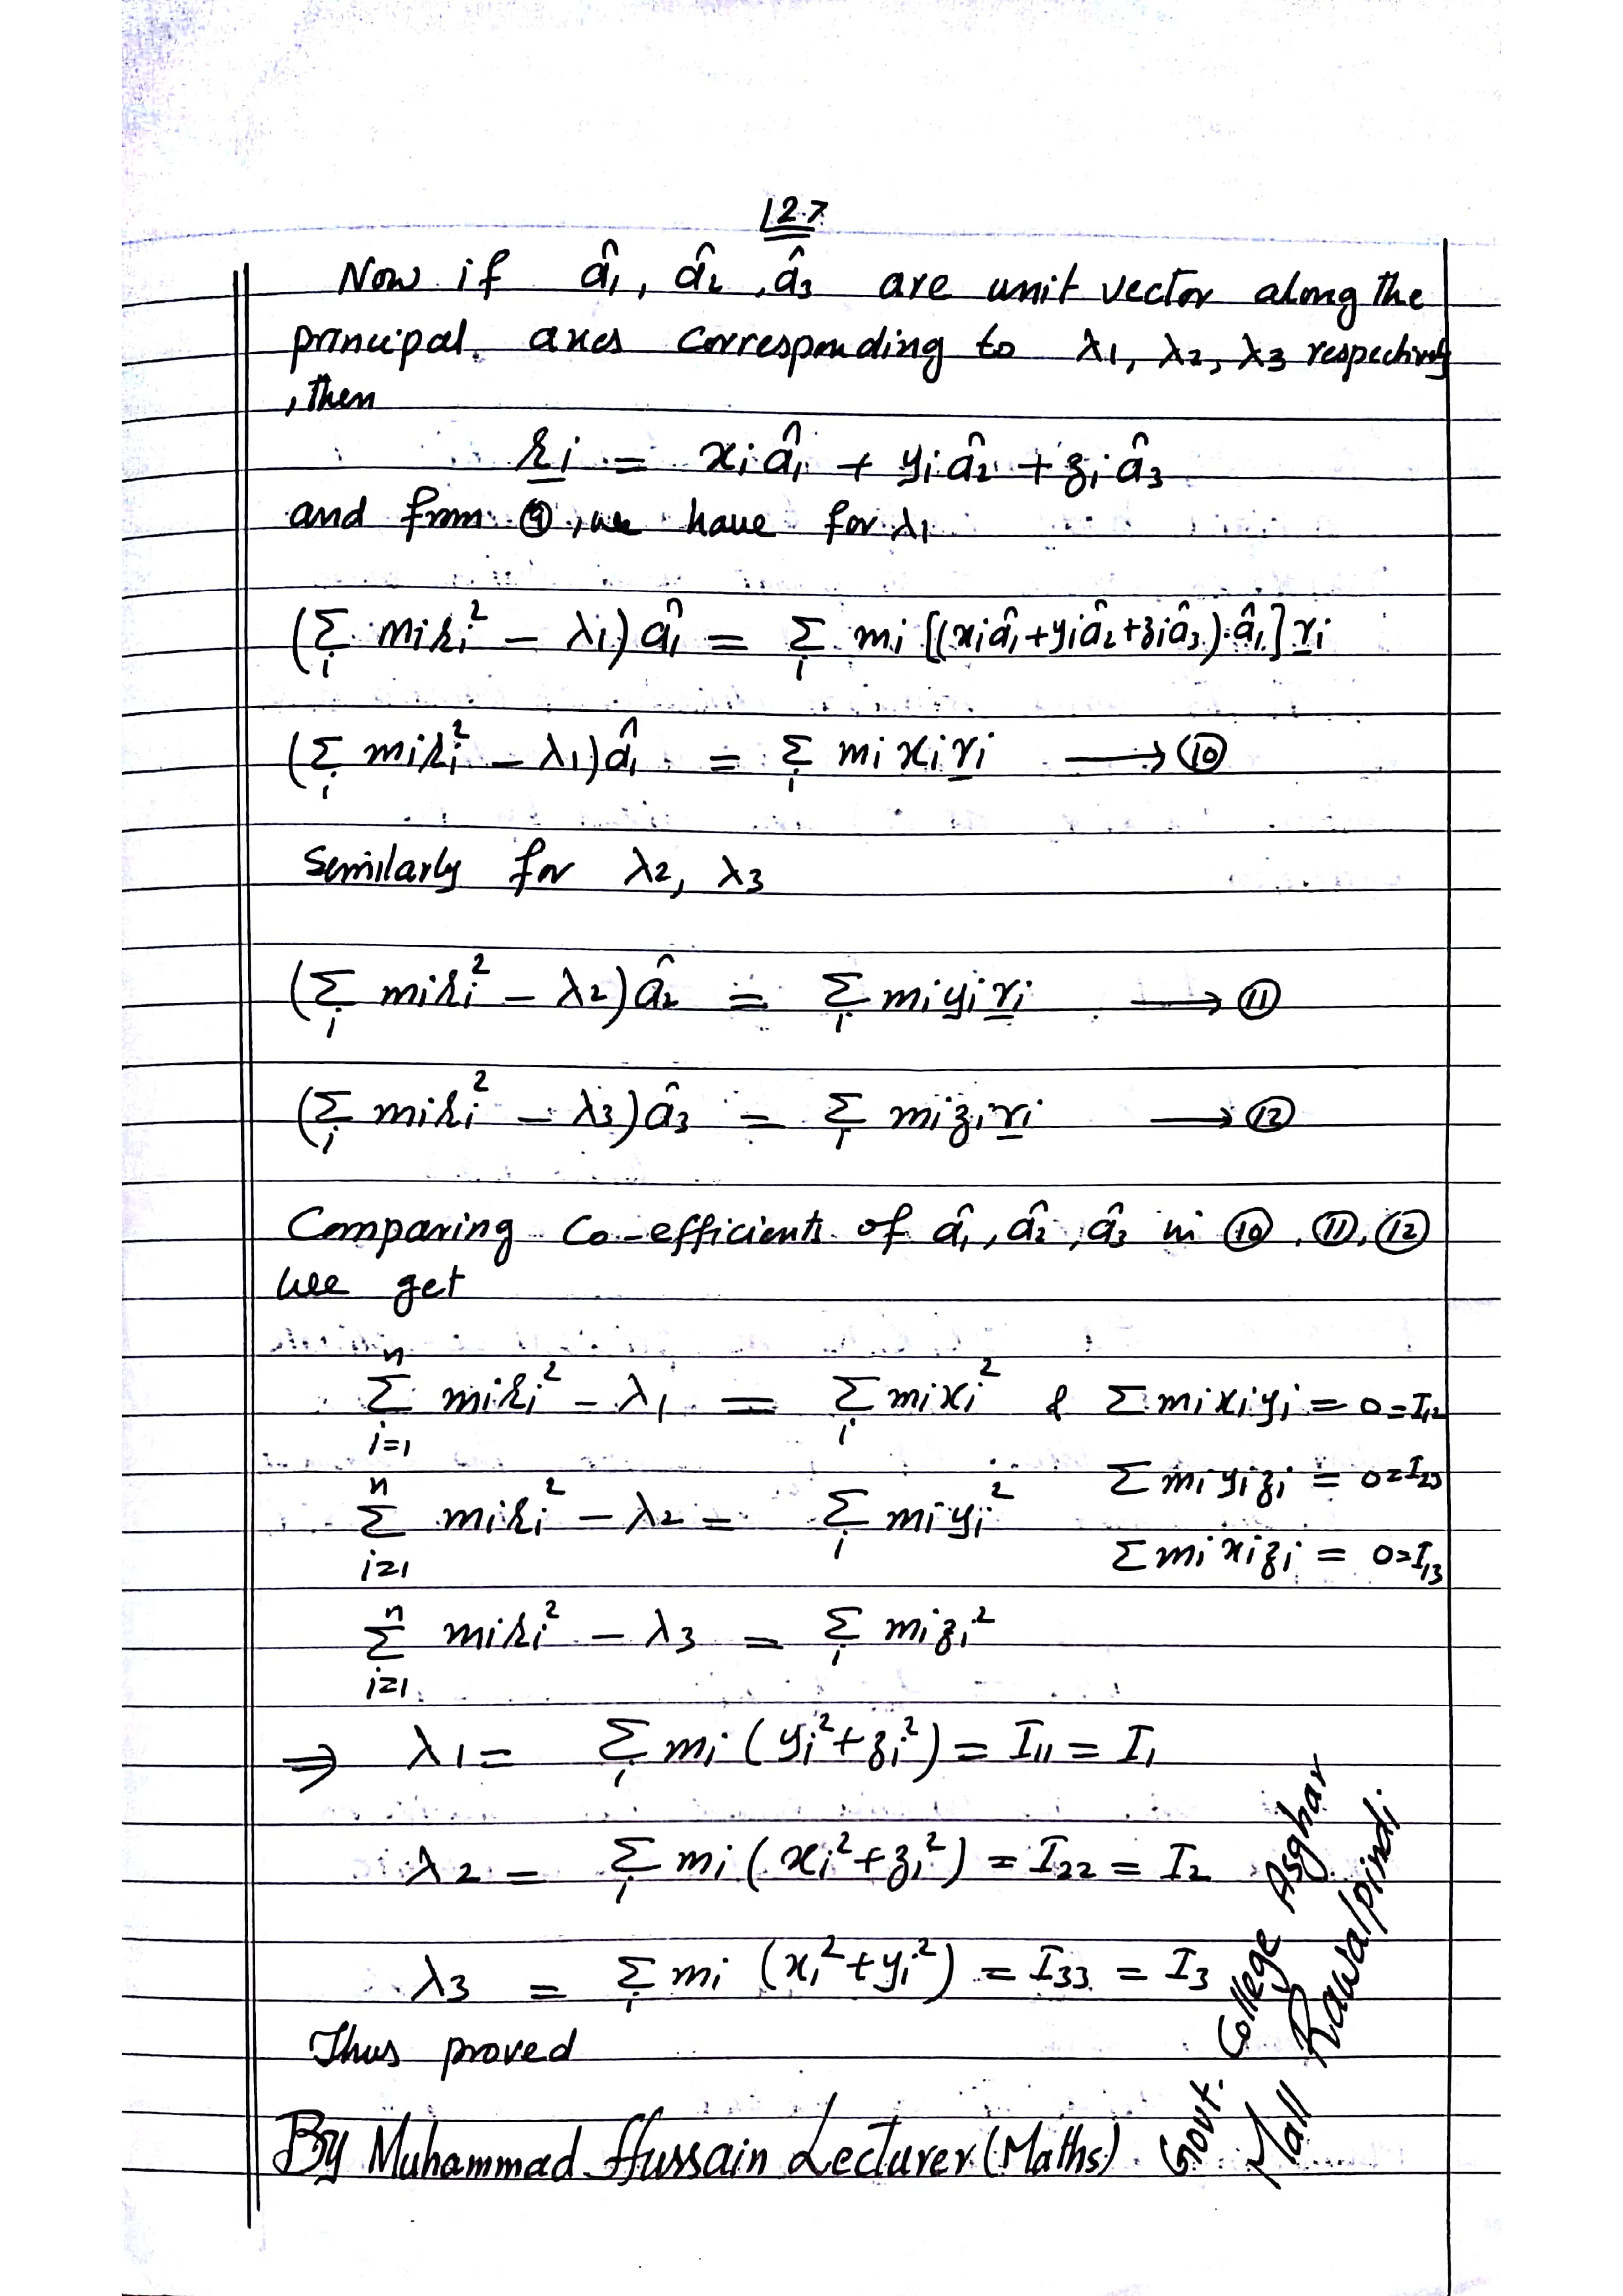 127
Now if â₁, â₂, â₃ are unit vector along the
principal axes corresponding to λ1, λ2, λ3 respectively
, then
r̲i = xi â₁ + yi â₂ + zi â₃
and from ⑨, we have for λ1
(Σi mi ri² – λ1) â₁ = Σi mi [(xi â₁ + yi â₂ + zi â₃)·â₁] r̲i
(Σi mi ri² – λ1) â₁ = Σi mi xi r̲i ⟶ ⑩
Similarly for λ2, λ3
(Σi mi ri² – λ2) â₂ = Σi mi yi r̲i ⟶ ⑪
(Σi mi ri² – λ3) â₃ = Σi mi zi r̲i ⟶ ⑫
Comparing Co-efficients of â₁, â₂, â₃ in ⑩, ⑪, ⑫
we get
Σ_{i=1}^{n} mi ri² – λ1 = Σi mi xi² & Σ mi xi yi = 0 = I12
Σ mi yi zi = 0 = I23
Σ_{i=1}^{n} mi ri² – λ2 = Σi mi yi²
Σ mi xi zi = 0 = I13
Σ_{i=1}^{n} mi ri² – λ3 = Σi mi zi²
⇒ λ1 = Σi mi (yi² + zi²) = I11 = I1
λ2 = Σi mi (xi² + zi²) = I22 = I2
λ3 = Σi mi (xi² + yi²) = I33 = I3
Thus proved
By Muhammad Hussain Lecturer (Maths)
Govt. College Asghar
Mall Rawalpindi